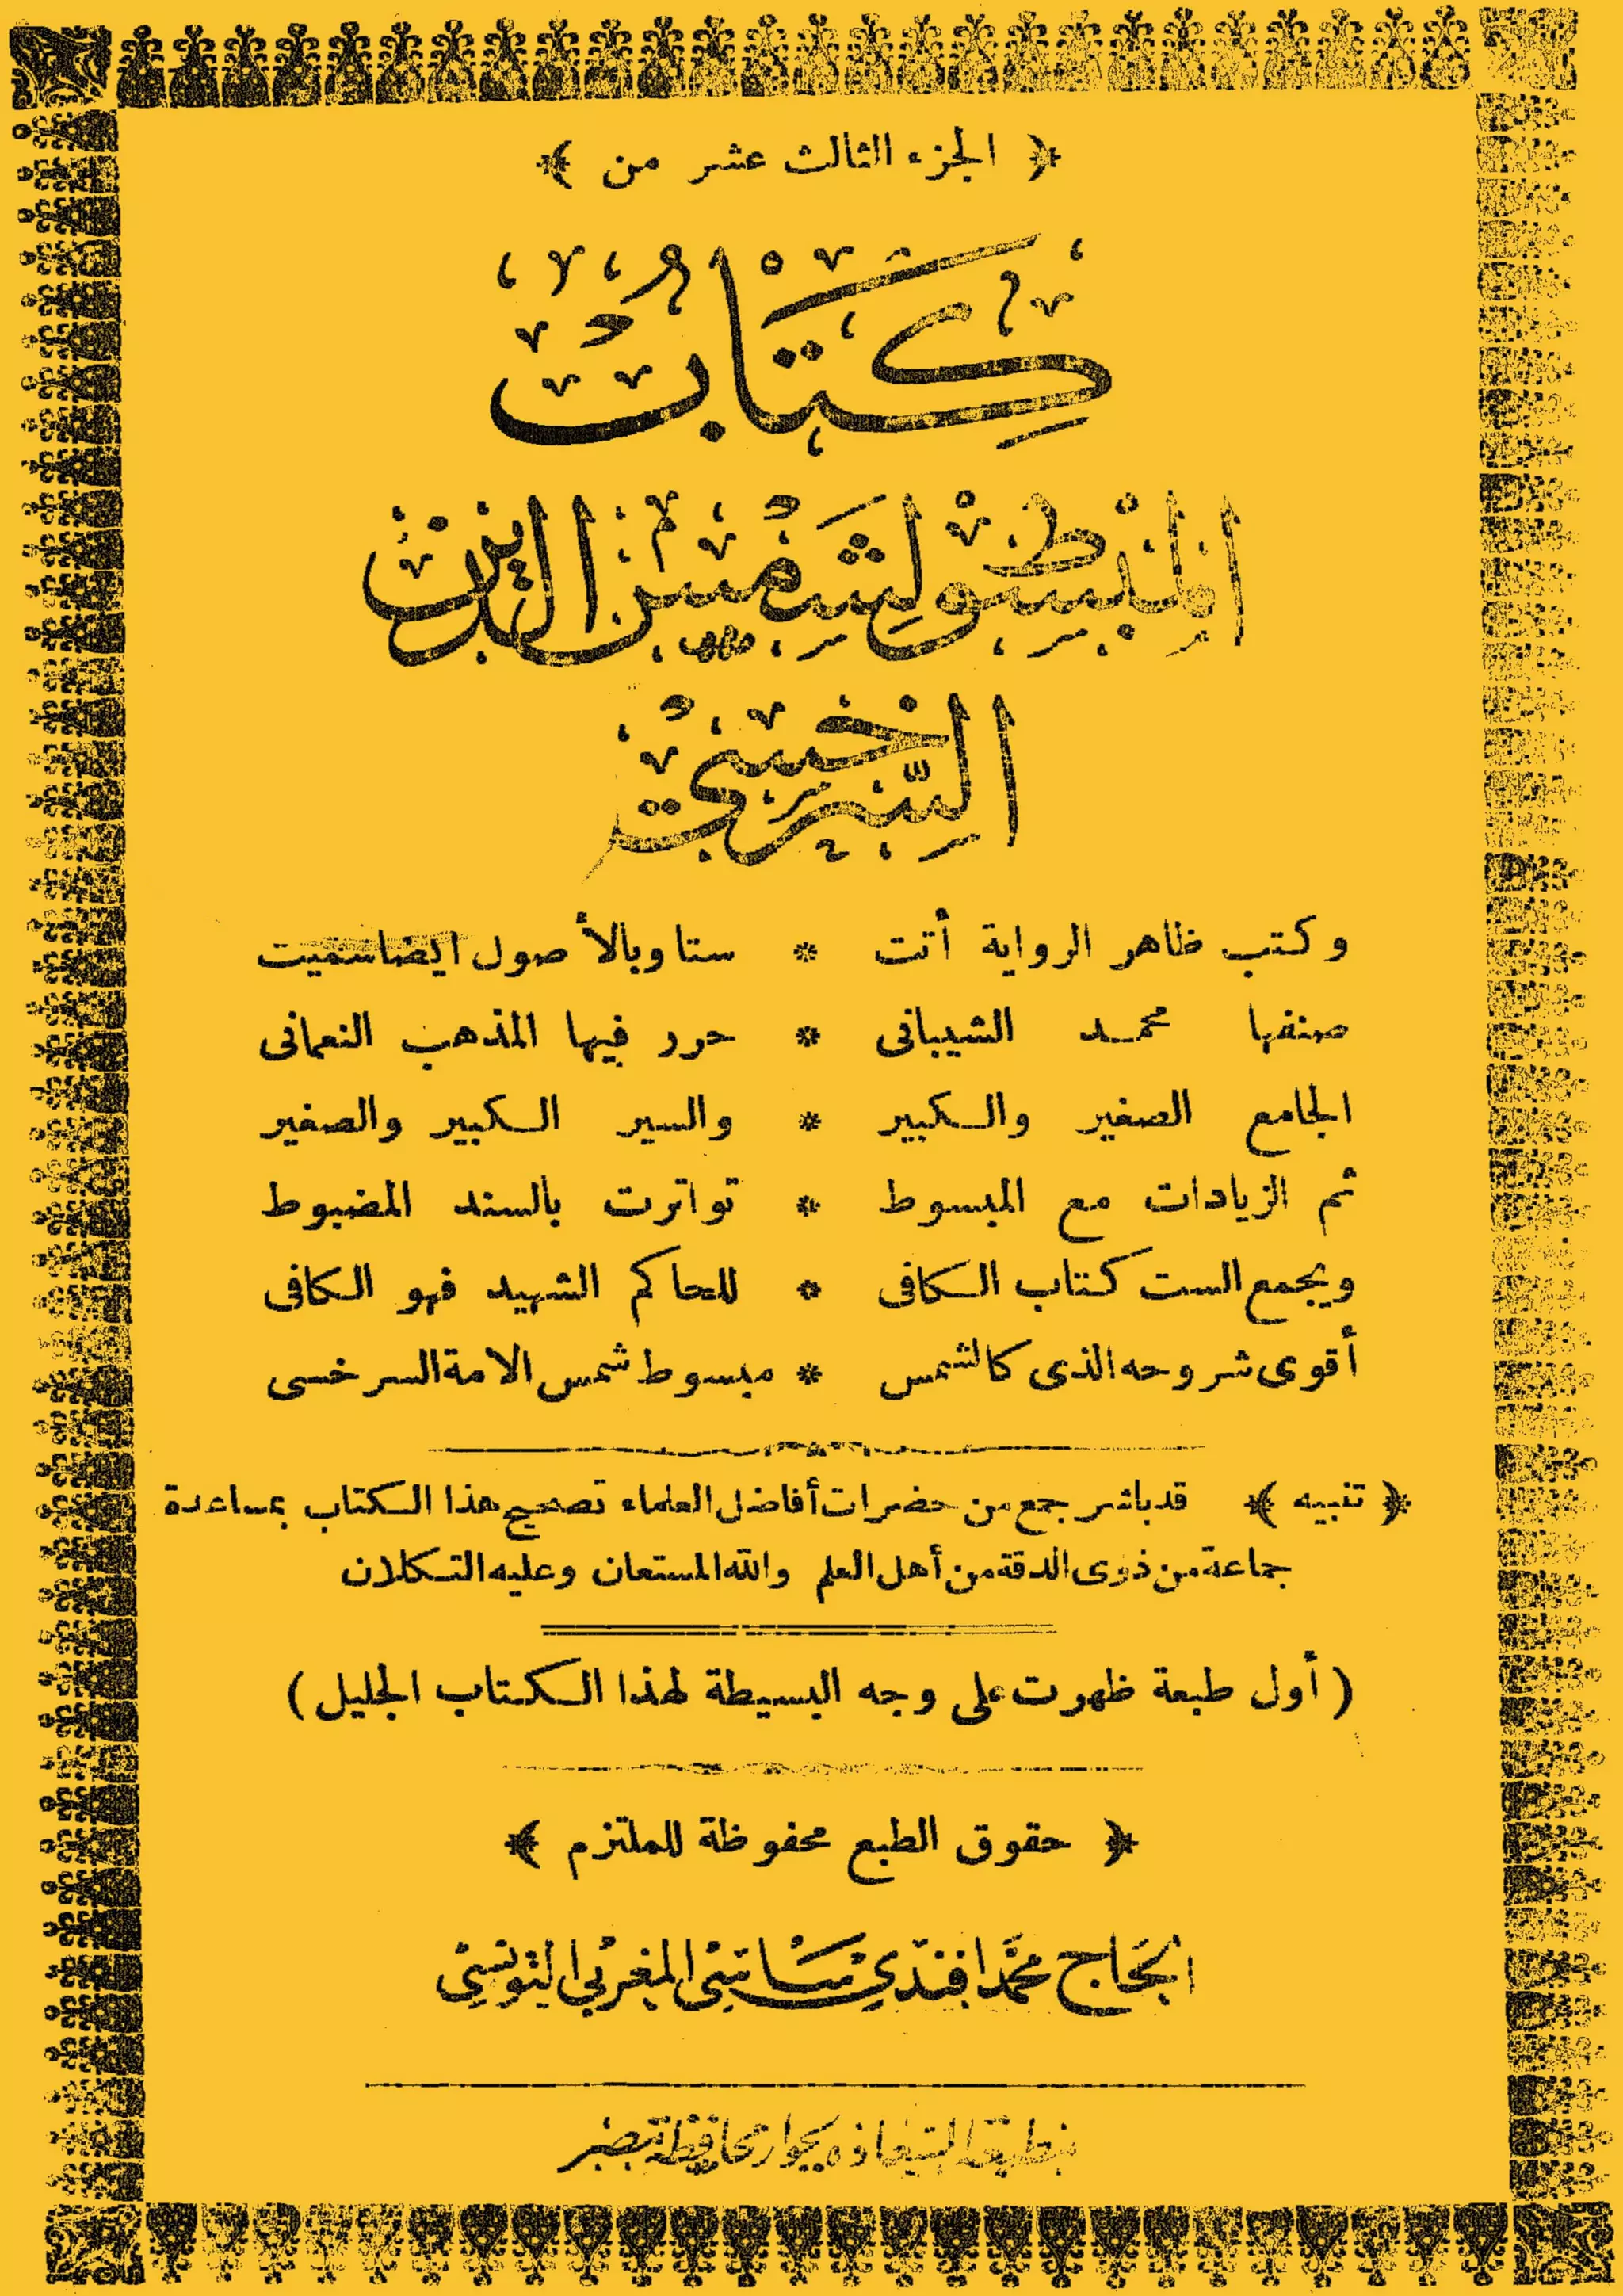 ﴿ الجزء الثالث عشر من ﴾
كتاب
المبسوط لشمس الدين
السرخسي
وكتب ظاهر الرواية أتت * ستا وبالأصول ايضا سميت
صنفها محمد الشيبانى * حرر فيها المذهب النعمانى
الجامع الصغير والكبير * والسير الكبير والصغير
ثم الزيادات مع المبسوط * تواترت بالسند المضبوط
ويجمع الست كتاب الكافى * للحاكم الشهيد فهو الكافى
أقوى شروحه الذى كالشمس * مبسوط شمس الامة السرخسى
﴿ تنبيه ﴾ قد باشر جمع من حضرات أفاضل العلماء تصحيح هذا الكتاب بمساعدة
جماعة من ذوى الدقة من أهل العلم والله المستعان وعليه التكلان
( أول طبعة ظهرت على وجه البسيطة لهذا الكتاب الجليل )
﴿ حقوق الطبع محفوظة للملتزم ﴾
الحاج محمد افندي ساسي المغربي التونسي
بمطبعة السعاده بجوار محافظة مصر